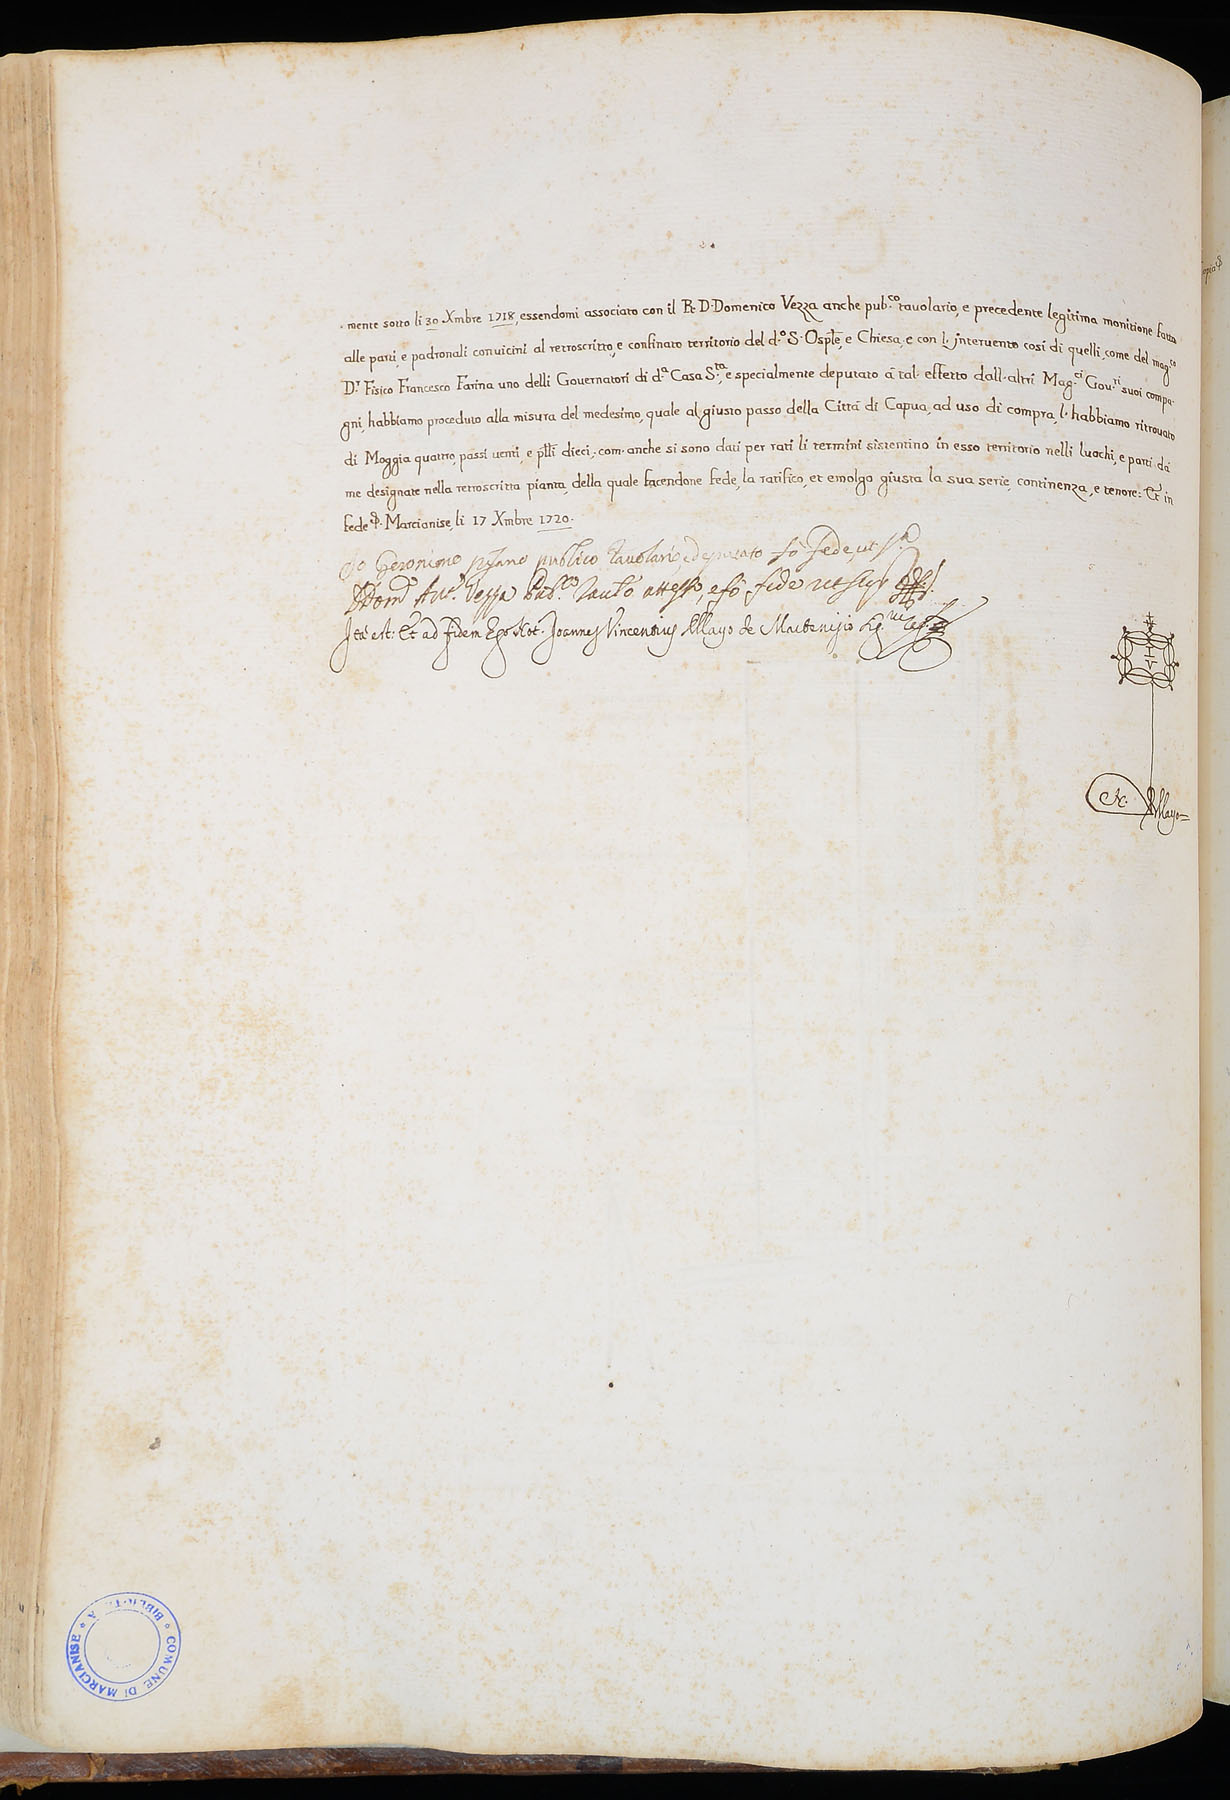 mente sotto li 30 Xmbre 1718, essendomi associato con il R. D. Domenico Vezza anche pub.co tauolario, e precedente legitima monitione fatta
alle parti, e padronali conuicini al retroscritto, e confinato territorio del d.o S. Osple, e Chiesa, e con l. interuento così di quelli, come del mag.co
D.r Fisico Francesco Farina uno delli Gouernatori di d.a Casa S.ta, e specialmente deputato à tal effetto dall altri Mag.ci Gou.ri suoi compa-
gni, habbiamo proceduto alla misura del medesimo, quale al giusto passo della Città di Capua, ad uso di compra, l habbiamo ritrouato
di Moggia quattro, passi uenti, e ptli dieci, com anche si sono dati per rati li termini sistentino in esso territorio nelli luochi, e parti da
me designate nella retroscritta pianta, della quale facendone fede, la ratifico, et emolgo giusta la sua serie, continenza, e tenore: Et in
fede Marcianise, li 17 Xmbre 1720.
Io Geronimo publico tauolario, deputato fò fede, ut s.a
D Dom.o Ant.o Vezza Pub.co Tau.o attesto, e fò fede ut supra
Ita est: Et ad fidem Ego Not. Joannes Vincentius Mayo de Marcenisio
N. Mayo=
COMUNE DI MARCIANISE